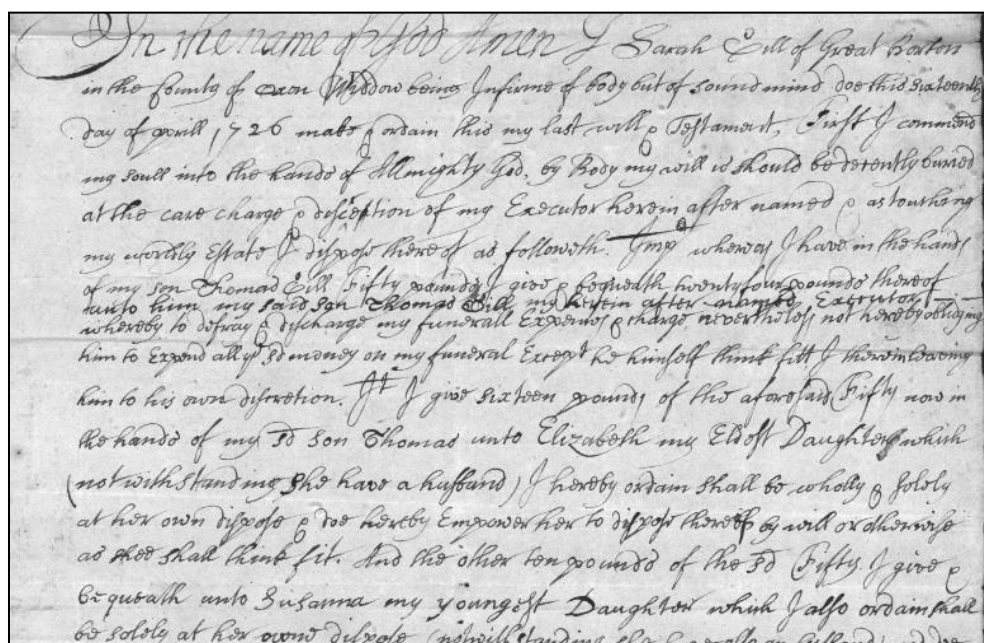 In the name of God Amen I Sarah Gill of Great Borton
in the County of oxon Widdow being Infirme of body but of sound mind doe this sixteenth
day of Aprill 1726 make & ordain this my last will & Testament, First I commend
my soull into the hands of Allmighty God, by Body my will is should be decently buried
at the care charge & discretion of my Executor herein after named & as touching
my worldly Estate I dispose thereof as followeth. Imp whereas I have in the hands
of my son Thomas Gill Fifty pounds I give & bequeath twenty four pounds thereof
unto him my said son Thomas Gill my herein after named Executor
whereby to defray & discharge my funerall Expences & charge nevertheless not hereby obligeing
him to Expend all ye sd money on my funeral Except he himself think fitt I therein leaving
him to his own discretion. It I give sixteen pounds of the aforesaid Fifty now in
the hands of my sd son Thomas unto Elizabeth my Eldest Daughter which
(notwithstanding she have a husband) I hereby ordain shall be wholly & solely
at her own dispose & doe hereby Empower her to dispose thereof by will or otherwise
as shee shall think fit. And the other ten pounds of the sd Fifty I give &
bequeath unto Susanna my youngest Daughter which I also ordain shall
be solely at her owne dispose (notwithstanding she have also an husband) and doe